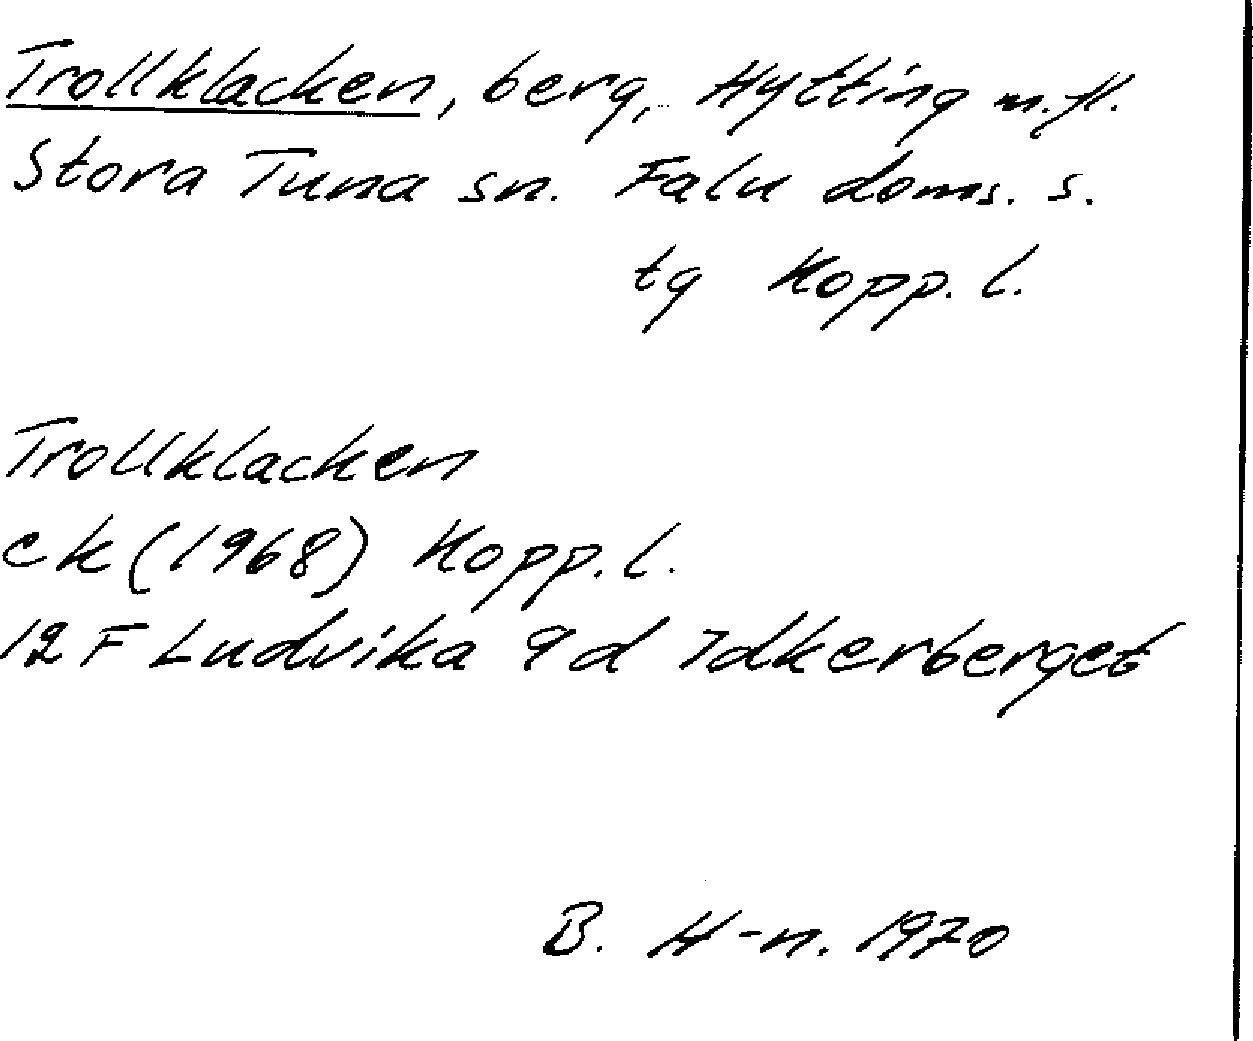 Trollklacken, berg, Hytting m.fl.
Stora Tuna sn. Falu doms. s.
tg Kopp. l.
Trollklacken
ek (1968) Kopp. l.
12 F Ludvika 9 d Idkerberget
B. H-n. 1970